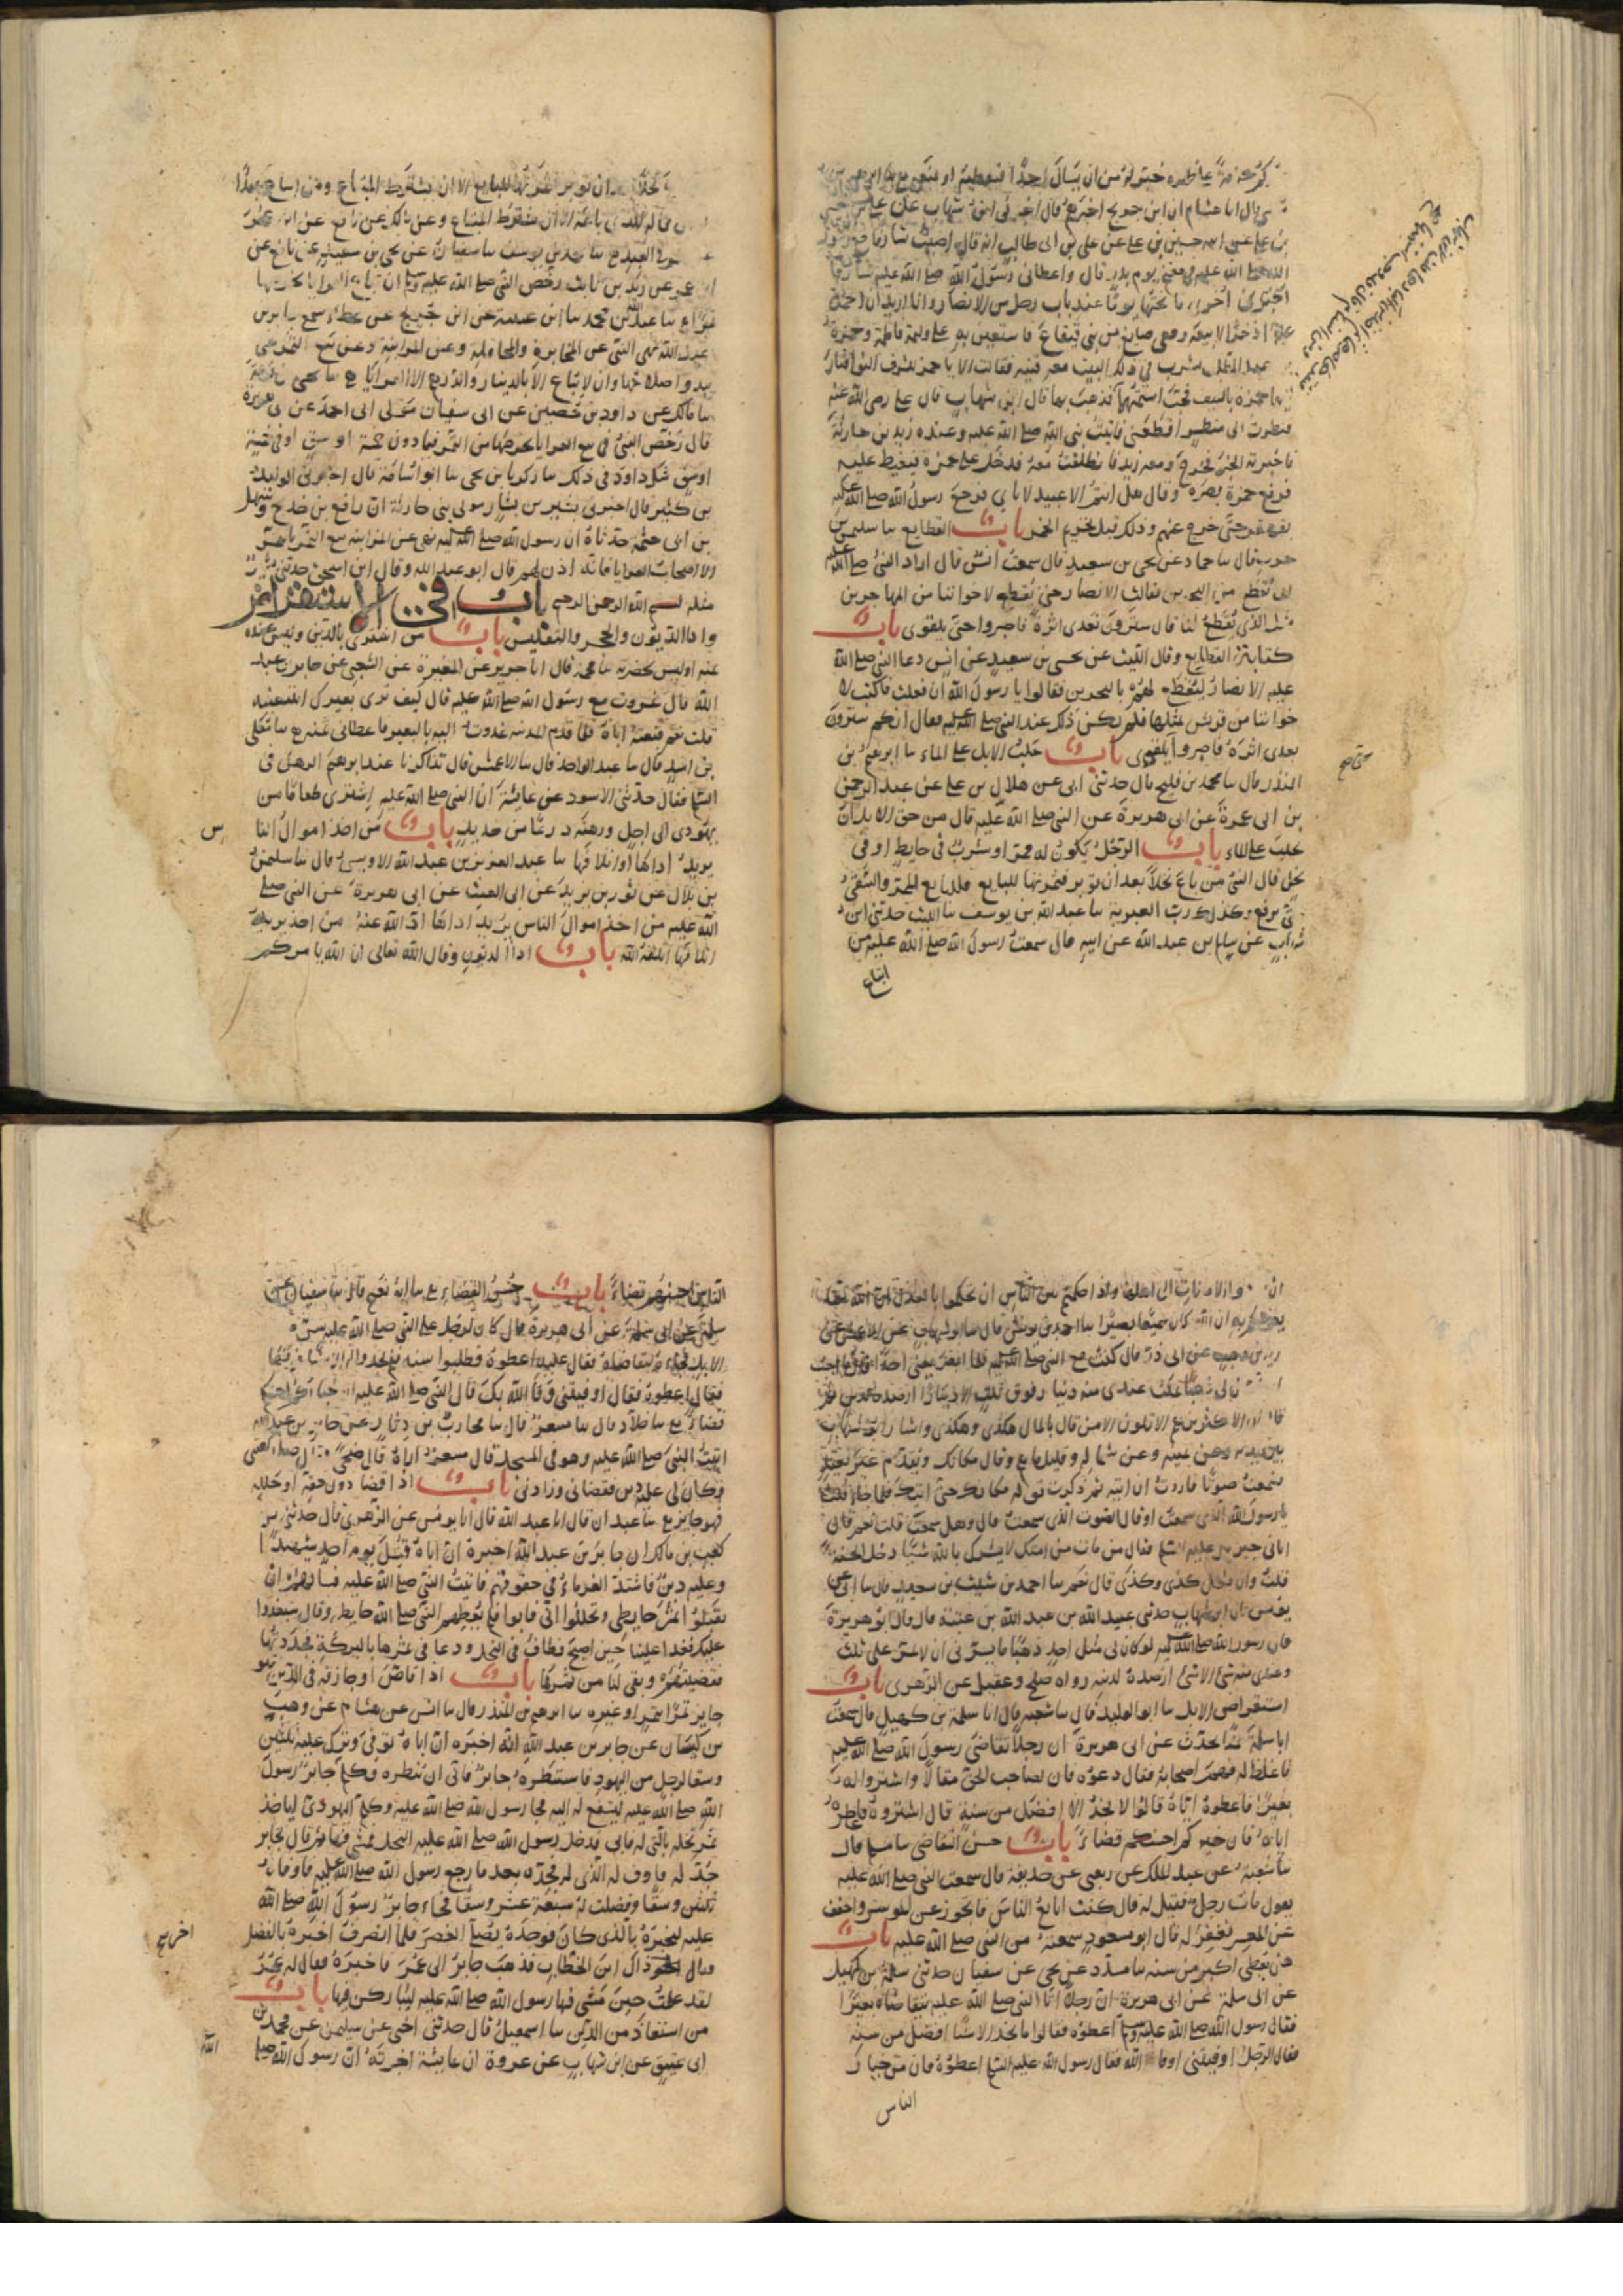 خير له من ان يسال احدا فيعطيه او يمنعه
انا هشام ان ابن جريج اخبرهم قال اخبرني ابن شهاب عن علي بن حسين
بن علي عن ابيه حسين بن علي عن علي بن ابي طالب انه قال اصبت شارفا مع رسول
الله صلى الله عليه في مغنم يوم بدر قال واعطاني رسول الله صلى الله عليه شارفا
اخرى فانختهما يوما عند باب رجل من الانصار وانا اريد ان احمل
عليهما اذخرا لابيعه ومعي صايغ من بني قينقاع فاستعين به على وليمة فاطمة وحمزة
بن عبد المطلب يشرب في ذلك البيت معه قينة فقالت الا يا حمز للشرف النوا فثار
اليهما حمزة بالسيف فجب اسنمتهما قال ابن شهاب قال علي رضي الله عنه
فنظرت الى منظر افظعني فاتيت نبي الله صلى الله عليه وعنده زيد بن حارثة
فاخبرته الخبر فخرج ومعه زيد فانطلقت معه فدخل على حمزة فتغيظ عليه
فرفع حمزة بصره وقال هل انتم الا عبيد لاباي فرجع رسول الله صلى الله عليه
يقهقر حتى خرج عنهم وذلك قبل تحريم الخمر باب القطايع نا سليمن بن
حرب قال نا حماد عن يحيى بن سعيد قال سمعت انس قال اراد النبي صلى الله عليه
ان يقطع من البحرين فقالت الانصار حتى يقطع لاخواننا من المهاجرين
مثل الذي يقطع لنا قال سترون بعدي اثرة فاصبروا حتى تلقوني باب
كتابة القطايع وقال الليث عن يحيى بن سعيد عن انس دعا النبي صلى الله
عليه الانصار ليقطع لهم بالبحرين فقالوا يا رسول الله ان فعلت فاكتب لا
خواننا من قريش بمثلها فلم يكن ذلك عند النبي صلى الله عليه فقال انكم سترون
بعدي اثرة فاصبروا تلقوني باب حلب الابل على الماء نا ابرهيم بن
المنذر قال نا محمد بن فليح قال حدثني ابي عن هلال بن علي عن عبد الرحمن
بن ابي عمرة عن ابي هريرة عن النبي صلى الله عليه قال من حق الابل ان
تحلب على الماء باب الرجل يكون له ممر او شرب في حايط او في
نخل قال النبي من باع نخلا بعد ان توبر فثمرتها للبايع فللبايع الممر والسقي
حتى يرفع وكذلك رب العرية نا عبد الله بن يوسف نا الليث حدثني ابن
شهاب عن سالم بن عبد الله عن ابيه قال سمعت رسول الله صلى الله عليه من
ابتاع
حتى صح
نخلا بعد ان توبر فثمرتها للبايع الا ان يشترط المبتاع ومن ابتاع عبدا
وله مال فماله للذي باعه الا ان يشترط المبتاع وعن مالك عن نافع عن ابن عمر
في العبد نا محمد بن يوسف نا سفيان عن يحيى بن سعيد عن نافع عن
ابن عمر عن زيد بن ثابت رخص النبي صلى الله عليه وسلم ان تباع العرايا بخرصها
تمرا نا عبد الله بن محمد نا ابن عيينة عن ابن جريج عن عطاء سمع جابر بن
عبد الله نهى النبي عن المخابرة والمحاقلة وعن المزابنة وعن بيع الثمر حتى
يبدو اصلاحها وان لا تباع الا بالدينار والدرهم الا العرايا نا يحيى بن قزعة
نا مالك عن داود بن حصين عن ابي سفيان مولى ابي احمد عن ابي هريرة
قال رخص النبي في بيع العرايا بخرصها من التمر فيما دون خمسة اوسق او في خمسة
اوسق شك داود في ذلك نا زكريا بن يحيى نا ابو اسامة قال اخبرني الوليد
بن كثير قال اخبرني بشير بن يسار مولى بني حارثة ان رافع بن خديج وسهل
بن ابي حثمة حدثاه ان رسول الله صلى الله عليه نهى عن المزابنة بيع الثمر بالتمر
الا اصحاب العرايا فانه اذن لهم قال ابو عبد الله وقال ابن اسحق حدثني بشير
مثله بسم الله الرحمن الرحيم باب في الاستقراض
واداء الديون والحجر والتفليس باب من اشترى بالدين وليس عنده
ثمنه او ليس بحضرته نا محمد قال انا جرير عن المغيرة عن الشعبي عن جابر بن عبد
الله قال غزوت مع رسول الله صلى الله عليه قال كيف ترى بعيرك اتبيعنيه
قلت نعم فبعته اياه فلما قدم المدينة غدوت اليه بالبعير فاعطاني ثمنه نا معلى
بن اسد قال نا عبد الواحد قال نا الاعمش قال تذاكرنا عند ابرهيم الرهن في
السلم فقال حدثني الاسود عن عايشة ان النبي صلى الله عليه اشترى طعاما من
يهودي الى اجل ورهنه درعا من حديد باب من اخذ اموال النا
س
يريد اداءها او اتلافها نا عبد العزيز بن عبد الله الاويسي قال نا سليمن
بن بلال عن ثور بن يزيد عن ابي الغيث عن ابي هريرة عن النبي صلى
الله عليه من اخذ اموال الناس يريد اداءها ادى الله عنه ومن اخذ يريد
اتلافها اتلفه الله باب اداء الديون وقال الله تعالى ان الله يامركم
ان تودوا الامانات الى اهلها واذا حكمتم بين الناس ان تحكموا بالعدل ان الله نعما
يعظكم به ان الله كان سميعا بصيرا نا احمد بن يونس قال نا ابو شهاب عن الاعمش عن
زيد بن وهب عن ابي ذر قال كنت مع النبي صلى الله عليه فلما ابصر يعني احدا قال ما احب
ان لي ذهبا يمكث عندي منه دينار فوق ثلاث الا دينارا ارصده لدين ثم
قال ان الاكثرين هم الاقلون الا من قال بالمال هكذى وهكذى واشار ابو شهاب
بين يديه وعن يمينه وعن شماله وقليل ما هم وقال مكانك وتقدم غير بعيد
فسمعت صوتا فاردت ان اتيه ثم ذكرت قوله مكانك حتى اتيك فلما جاء قلت
يا رسول الله الذي سمعت او قال الصوت الذي سمعت قال وهل سمعت قلت نعم قال
اتاني جبريل عليه السلم فقال من مات من امتك لا يشرك بالله شيئا دخل الجنة
قلت وان فعل كذى وكذى قال نعم نا احمد بن شبيب بن سعيد قال نا ابي عن
يونس قال ابن شهاب حدثني عبيد الله بن عبد الله بن عتبة قال قال ابو هريرة
قال رسول الله صلى الله عليه لو كان لي مثل احد ذهبا ما يسرني ان لا يمر علي ثلث
وعندي منه شيء الا شيء ارصده لدين رواه صالح وعقيل عن الزهري باب
استقراض الابل نا ابو الوليد قال نا شعبة قال انا سلمة بن كهيل قال سمعت
ابا سلمة يحدث عن ابي هريرة ان رجلا تقاضى رسول الله صلى الله عليه
فاغلظ له فهم اصحابه فقال دعوه فان لصاحب الحق مقالا واشتروا له
بعيرا فاعطوه اياه قالوا لا نجد الا افضل من سنه قال اشتروه فاعطوه
اياه فان خيركم احسنكم قضاء باب حسن التقاضي نا مسلم قال
نا شعبة عن عبد الملك عن ربعي عن حذيفة قال سمعت النبي صلى الله عليه
يقول مات رجل فقيل له قال كنت ابايع الناس فاتجوز عن الموسر واخفف
عن المعسر فغفر له قال ابو مسعود سمعته من النبي صلى الله عليه باب
هل يعطى اكبر من سنه نا مسدد عن يحيى عن سفيان حدثني سلمة بن كهيل
عن ابي سلمة عن ابي هريرة ان رجلا اتى النبي صلى الله عليه يتقاضاه بعيرا
فقال رسول الله صلى الله عليه وسلم اعطوه فقالوا ما نجد الا سنا افضل من سنه
فقال الرجل اوفيتني اوفاك الله فقال رسول الله عليه السلم اعطوه فان من خيار
الناس
الناس احسنهم قضاء باب حسن القضاء نا ابو نعيم قال نا سفيان عن
سلمة عن ابي سلمة عن ابي هريرة قال كان لرجل على النبي صلى الله عليه سن من
الابل فجاءه يتقاضاه فقال عليه اعطوه فطلبوا سنه فلم يجدوا الا سنا فوقها
فقال اعطوه فقال اوفيتني وفا الله بك قال النبي صلى الله عليه ان خياركم احسنكم
قضاء نا خلاد قال نا مسعر قال نا محارب بن دثار عن جابر بن عبد الله
اتيت النبي صلى الله عليه وهو في المسجد قال مسعر اراه قال ضحى فقال صل ركعتين
وكان لي عليه دين فقضاني وزادني باب اذا قضا دون حقه او حلله
فهو جايز نا عبدان قال انا عبد الله قال انا يونس عن الزهري قال حدثني بن
كعب بن مالك ان جابر بن عبد الله اخبره ان اباه قتل يوم احد شهيدا
وعليه دين فاشتد الغرماء في حقوقهم فاتيت النبي صلى الله عليه فسالهم ان
يقبلوا ثمر حايطي ويحللوا ابي فابوا فلم يعطهم النبي صلى الله حايطي وقال سنغدوا
عليك فغدا علينا حين اصبح فطاف في النخل ودعا في ثمرها بالبركة فجددتها
فقضيتهم وبقي لنا من تمرها باب اذا قاص او جازفه في الدين فهو
جايز تمرا بتمر او غيره نا ابرهيم بن المنذر قال نا انس عن هشام عن وهب
بن كيسان عن جابر بن عبد الله انه اخبره ان اباه توفي وترك عليه ثلثين
وسقا لرجل من اليهود فاستنظره جابر فابى ان ينظره وكلم جابر رسول
الله صلى الله عليه ليشفع له اليه فجا رسول الله صلى الله عليه وكلم اليهودي لياخذ
ثمر نخله بالتي له فابى فدخل رسول الله صلى الله عليه النخل فمشى فيها ثم قال لجابر
جد له فاوف له الذي له فجده بعد ما رجع رسول الله صلى الله عليه فاوفاه
ثلثين وسقا وفضلت له سبعة عشر وسقا فجاء جابر رسول الله صلى الله
عليه ليخبره بالذي كان فوجده يصلي العصر فلما انصرف اخبره بالفضل
فقال اخبر ذاك ابن الخطاب فذهب جابر الى عمر فاخبره فقال له عمر
لقد علمت حين مشى فيها رسول الله صلى الله عليه ليباركن فيها باب
من استعاذ من الدين نا اسمعيل قال حدثني اخي عن سليمن عن محمد بن
ابي عتيق عن ابن شهاب عن عروة ان عايشة اخبرته ان رسول الله صلى
الله